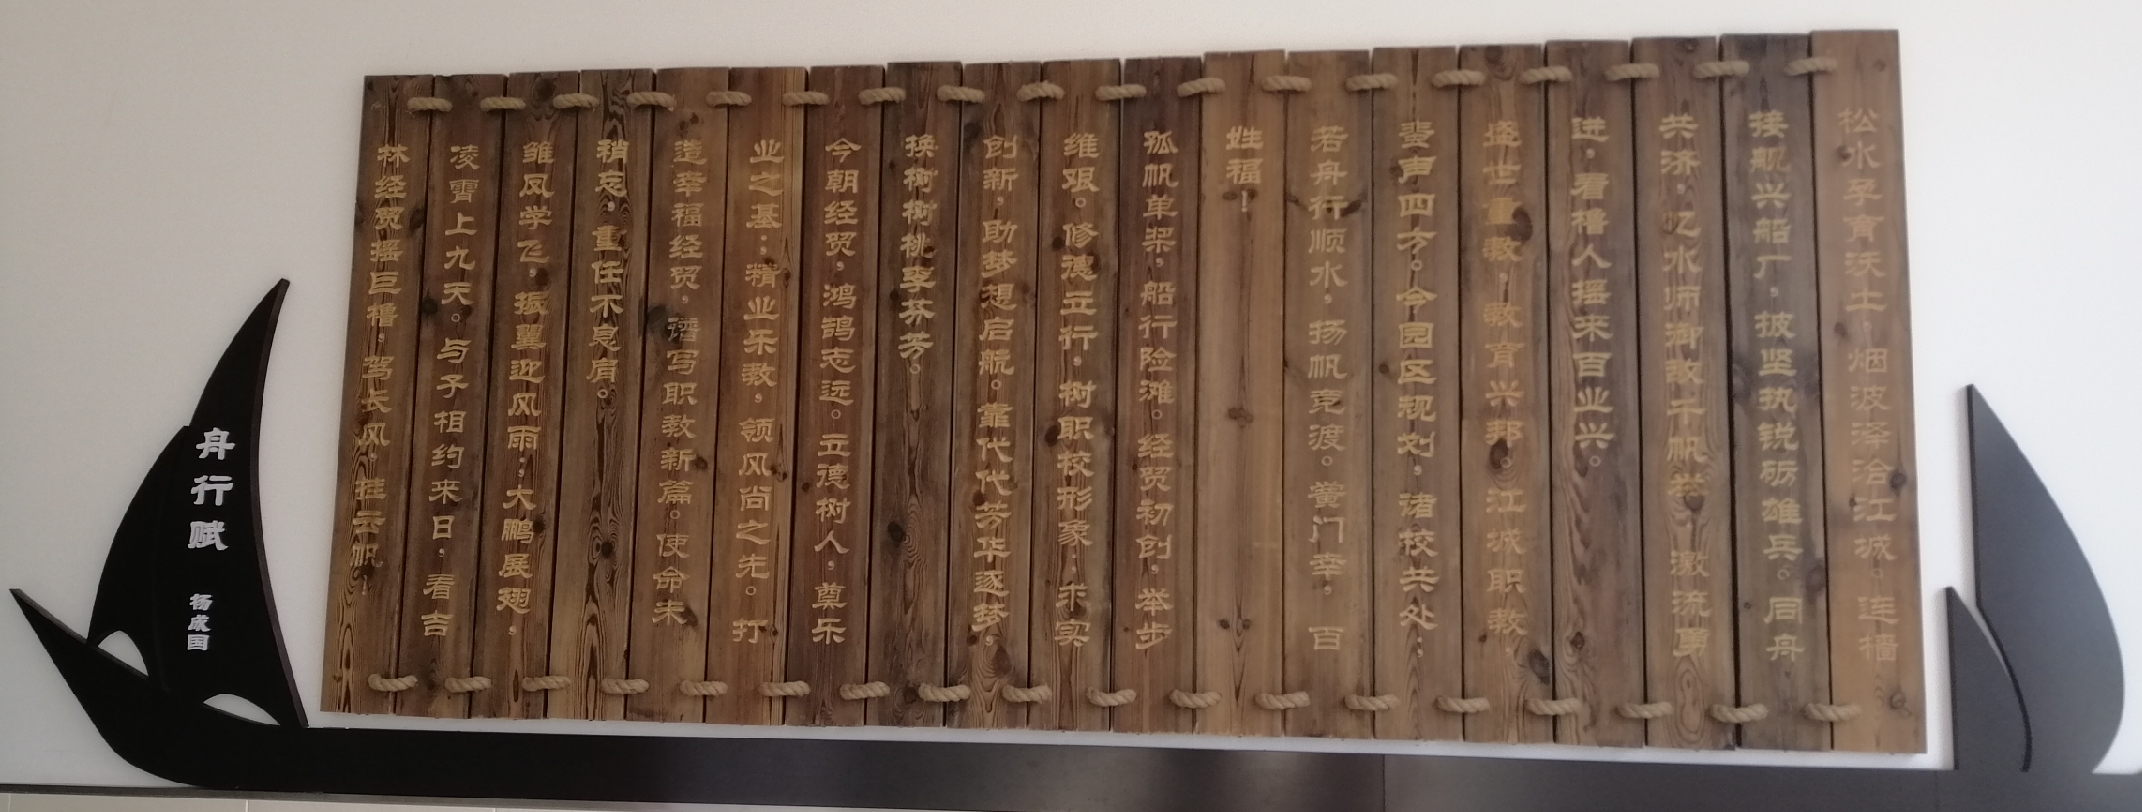 舟行赋
杨成国
松水孕育沃土，烟波泽洽江城。连樯
接舰兴船厂，披坚执锐砺雄兵。同舟
共济，忆水师御敌千帆举，激流勇
进，看橹人摇来百业兴。
盛世重教，教育兴邦。江城职教，
蜚声四方。今园区规划，诸校共处；
若舟行顺水，扬帆竞渡。黉门幸，百
姓福！
孤帆单桨，船行险滩。经贸初创，举步
维艰。修德立行，树职校形象；求实
创新，助梦想启航。靠代代芳华逐梦，
换树树桃李芬芳。
今朝经贸，鸿鹄志远。立德树人，奠乐
业之基；精业乐教，领风尚之先。打
造幸福经贸，谱写职教新篇。使命未
稍忘，重任不息肩。
雏凤学飞，振翼迎风雨；大鹏展翅，
凌霄上九天。与子相约来日，看吉
林经贸摇巨橹，驾长风，挂云帆！